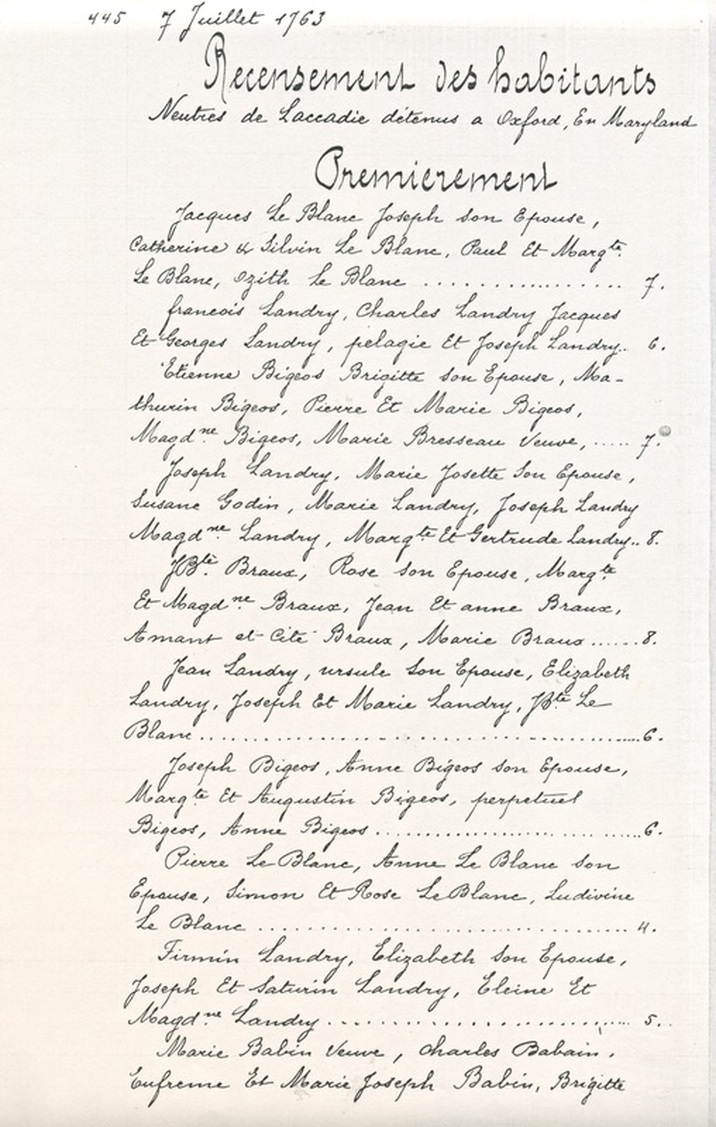 445 7 Juillet 1763
Recensement des habitants
Neutres de Laccadie détenus a Oxford, En Maryland
Premierement
Jacques Le Blanc Joseph son Epouse,
Catherine & Silvin Le Blanc, Paul Et Margte
Le Blanc, Ozith Le Blanc .................... 7.
francois Landry, Charles Landry Jacques
Et Georges Landry, pelagie Et Joseph Landry.. 6.
Etienne Bigeos Brigitte son Epouse, Ma-
thurin Bigeos, Pierre Et Marie Bigeos,
Magdne Bigeos, Marie Bresseau Veuve, ..... 7.
Joseph Landry, Marie Josette Son Epouse,
Susane Godin, Marie Landry, Joseph Landry
Magdne Landry, Margte Et Gertrude Landry.. 8.
JBte Braux, Rose son Epouse, Margte
Et Magdne Braux, Jean Et anne Braux,
Amant et Cité Braux, Marie Braux ...... 8.
Jean Landry, ursule Son Epouse, Elizabeth
Landry, Joseph Et Marie Landry, JBte Le
Blanc ........................................ 6.
Joseph Bigeos, Anne Bigeos son Epouse,
Margte Et Augustin Bigeos, perpetuel
Bigeos, Anne Bigeos ........................ 6.
Pierre Le Blanc, Anne Le Blanc son
Epouse, Simon Et Rose Le Blanc, Ludivine
Le Blanc .................................... 4.
Firmin Landry, Elizabeth Son Epouse,
Joseph Et Saturin Landry, Eleine Et
Magdne Landry ............................ 5.
Marie Babin Veuve, Charles Babain,
Eufreme Et Marie Joseph Babin, Brigitte